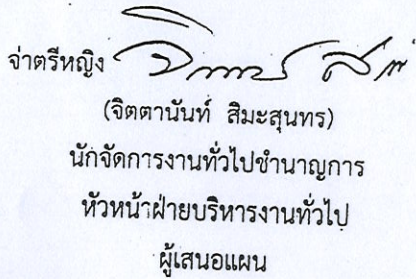 จ่าตรีหญิง
(จิตตานันท์ สิมะสุนทร)
นักจัดการงานทั่วไปชำนาญการ
หัวหน้าฝ่ายบริหารงานทั่วไป
ผู้เสนอแผน